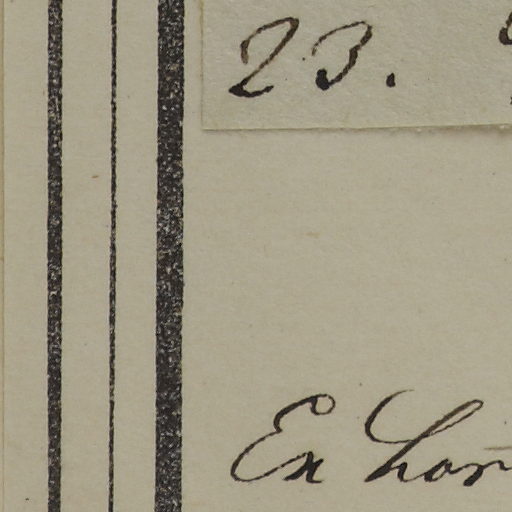 23.
Ex hor